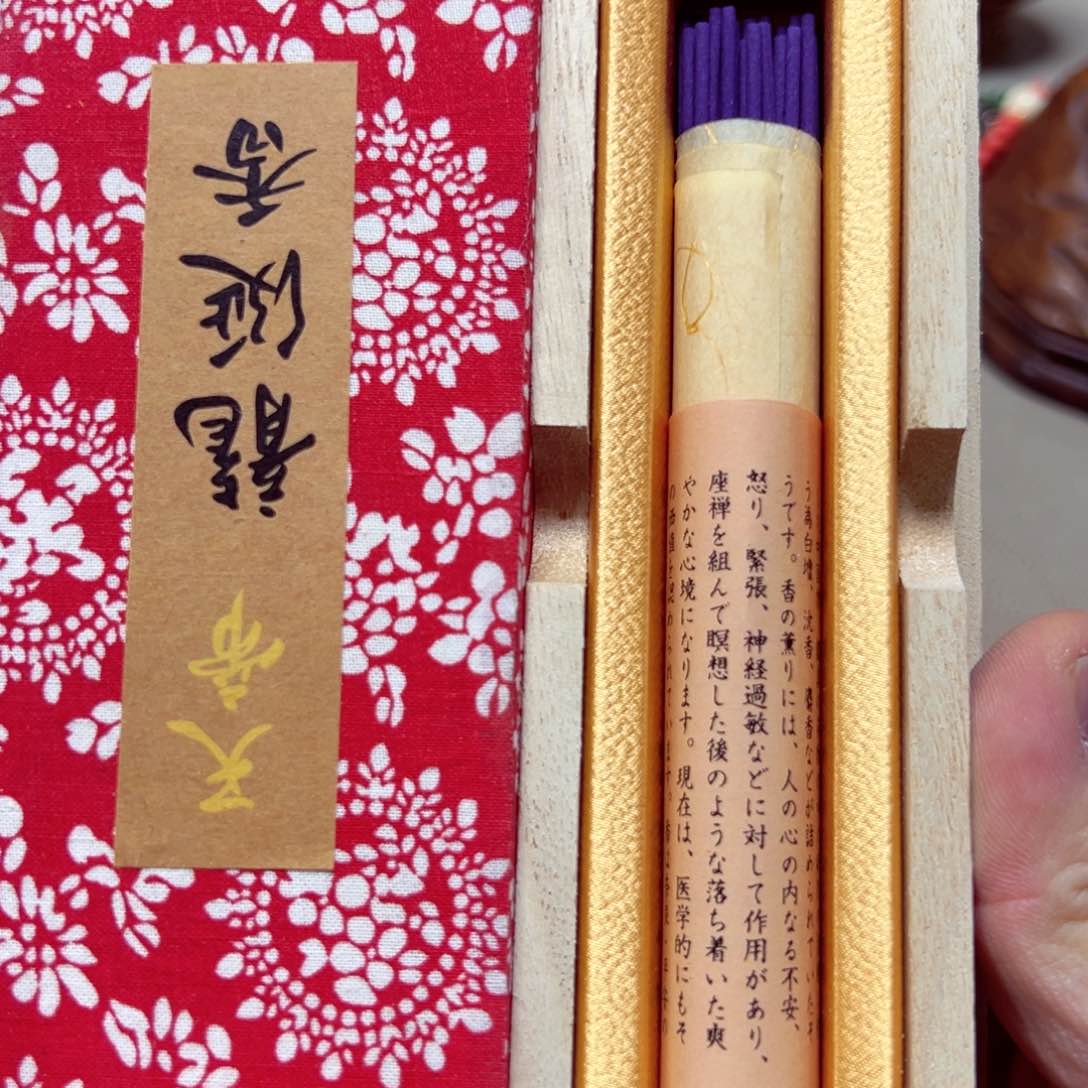 天帝 龍涎香
う為白檀、沈香、麝香などが詰められていたそ
うです。香の薫りには、人の心の内なる不安、
怒り、緊張、神経過敏などに対して作用があり、
座禅を組んで瞑想した後のような落ち着いた爽
やかな心境になります。現在は、医学的にもそ
の価値を認められています。